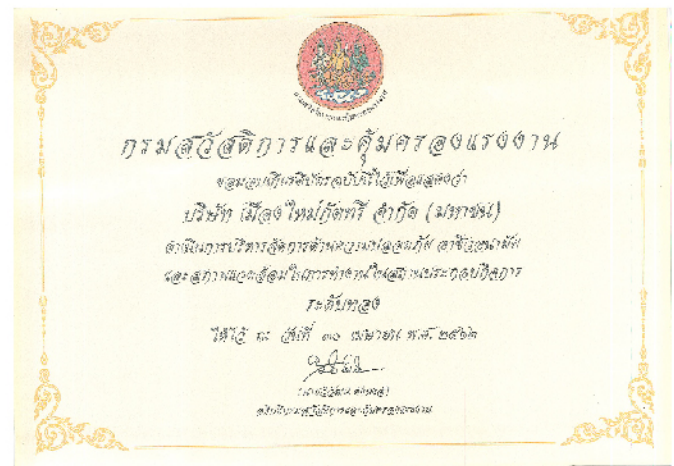 กรมสวัสดิการและคุ้มครองแรงงาน
ขอมอบเกียรติบัตรฉบับนี้ไว้เพื่อแสดงว่า
บริษัท เมืองใหม่กัตทรี จำกัด (มหาชน)
ดำเนินการบริหารจัดการด้านความปลอดภัย อาชีวอนามัย
และสภาพแวดล้อมในการทำงานในสถานประกอบกิจการ
ระดับทอง
ให้ไว้ ณ วันที่ ๓๐ เมษายน พ.ศ. ๒๕๖๒
อธิบดีกรมสวัสดิการและคุ้มครองแรงงาน